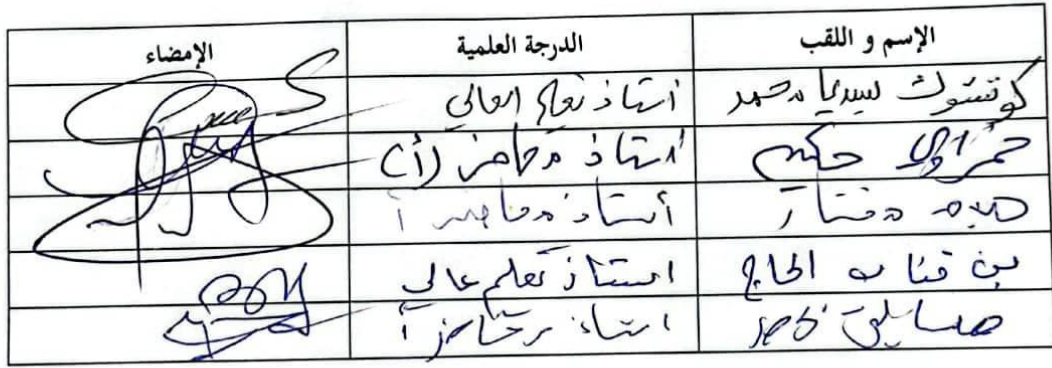 الإسم و اللقب الدرجة العلمية الإمضاء
كوتشوك سيديا محمد أستاذ تعليم العالي
حمراوي حكيم أستاذ محاضر (أ)
مختار أستاذ محاضر أ
بن قناب الحاج استاذ تعليم عالي
استاذ محاضر أ